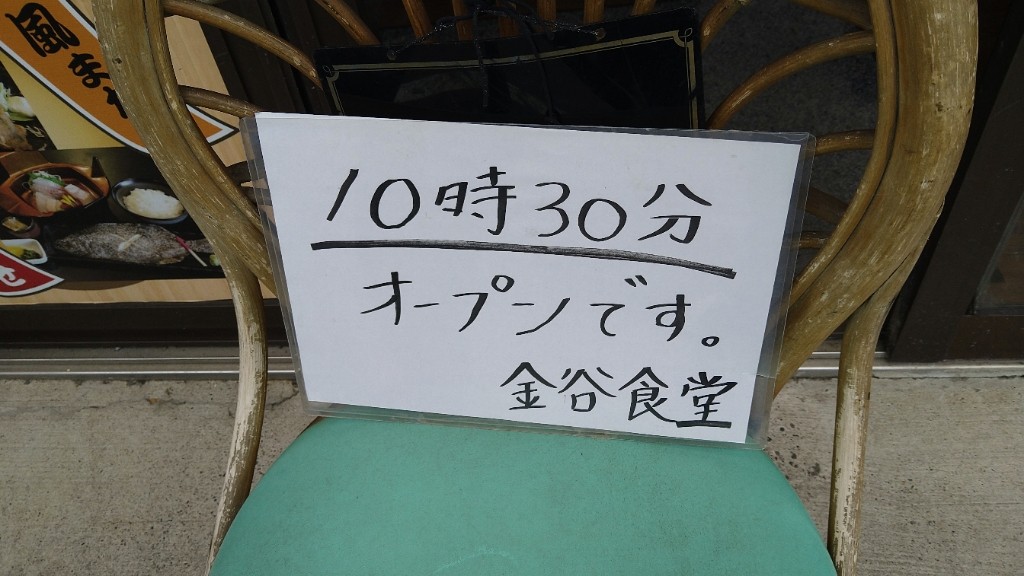 10時30分
オープンです。
金谷食堂
風ま